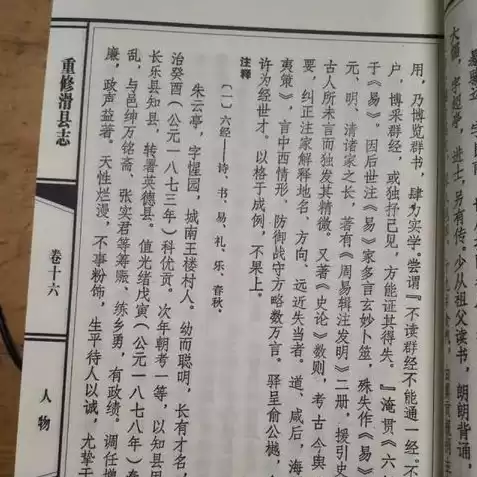 大領，字
用，乃博览群书，肆为实学。尝谓『不读群经不能通一经。不
户，博采群经，或独抒己见，方能证其得失。『淹贯《六
于《易》。因后世注《易》家多言玄妙卜筮，殊失作《易》
元、明、清诸家之长，著有《周易辑注发明》二册，援引史
古人所未言而独发其精微。又著《史论》数则，考古今舆
要，纠正注家解释地名、方向、远近失当者。道、咸后，海
夷策》，言中西情形，防御战守方略数万言。驿呈俞公樾，
许为经世才。以格于成例，不果上。
注释
（一）六经——诗、书、易、礼、乐、春秋。
朱云亭，字惺园，城南王楼村人。幼而聪明，长有才名，
治癸酉（公元一八七三年）科优贡。次年朝考一等，以知县
长乐县知县，转署英德县。值光绪戊寅（公元一八七八年）
乱，与邑绅万铭斋、张实君等筹赈、练乡勇，有政绩。调任
廉，政声益著。天性烂漫，不事粉饰，生平待人以诚，尤挚于
重修滑县志
卷十六
人物